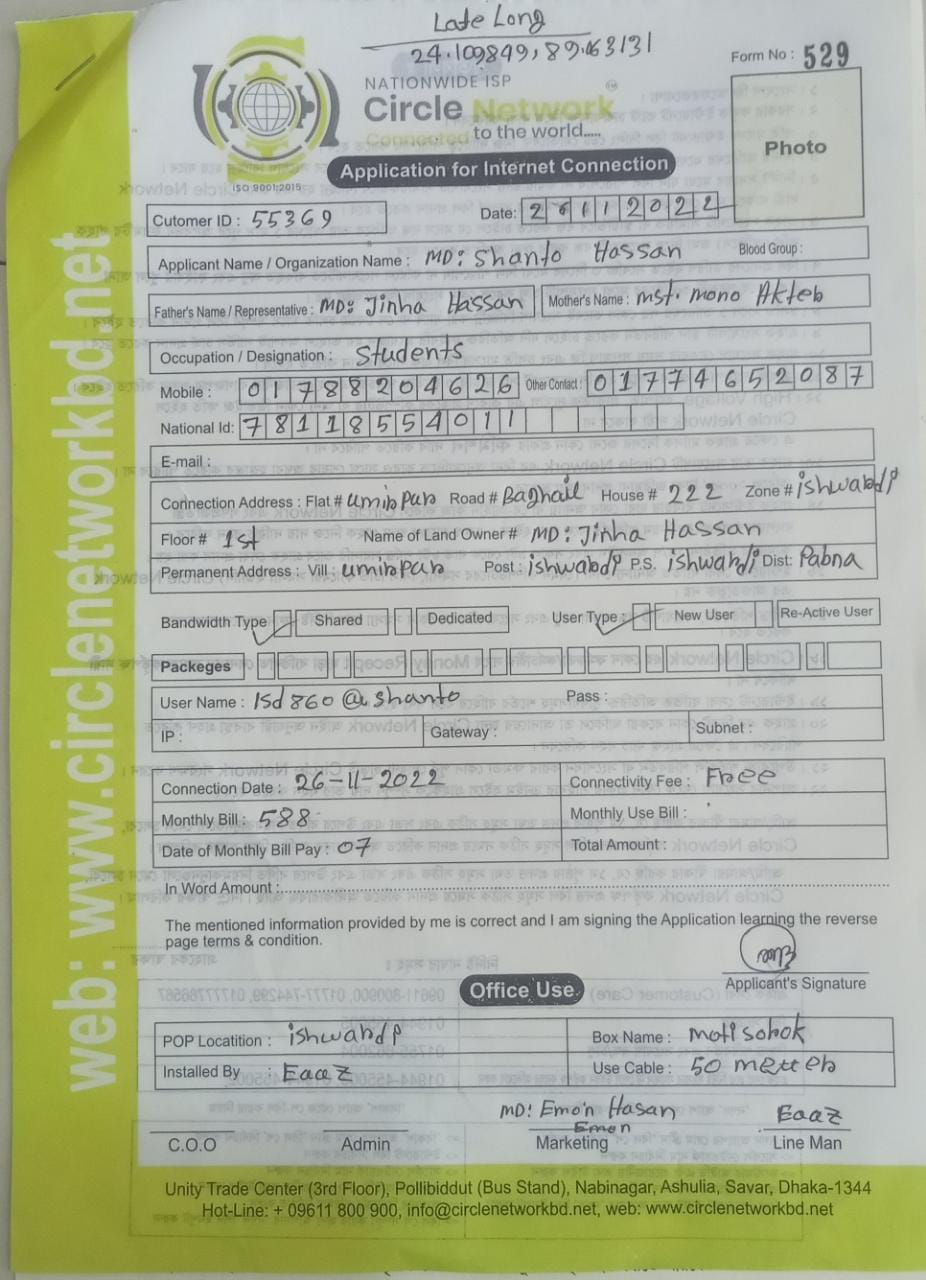 Late Long
24.109849, 89.063131
Form No : 529
NATIONWIDE ISP
Circle Network
Connected to the world.....
ISO 9001:2015
Photo
Application for Internet Connection
Cutomer ID : 55369 Date: 26112022
Applicant Name / Organization Name : MD: Shanto Hassan Blood Group :
Father's Name / Representative : MD: Jinha Hassan Mother's Name : mst. mono Akteb
Occupation / Designation : Students
Mobile : 01788204626 Other Contact : 01774652087
National Id: 7811855401 1
E-mail :
Connection Address : Flat # umirpur Road # Baghail House # 222 Zone # ishwardi
Floor # 1st Name of Land Owner # MD: Jinha Hassan
Permanent Address : Vill : umirpur Post : ishwardi P.S. ishwardi Dist: Pabna
Bandwidth Type Shared Dedicated User Type : New User Re-Active User
Packeges
User Name : Isd860@shanto Pass :
IP : Gateway : Subnet :
Connection Date : 26-11-2022 Connectivity Fee : Free
Monthly Bill : 588 Monthly Use Bill :
Date of Monthly Bill Pay : 07 Total Amount :
In Word Amount :
The mentioned information provided by me is correct and I am signing the Application learning the reverse
page terms & condition.
Applicant's Signature
Office Use
POP Locatition : ishwardi Box Name : motisohok
Installed By : Eaaz Use Cable : 50 metter
MD: Emon Hasan Eaaz
Emon
C.O.O Admin Marketing Line Man
Unity Trade Center (3rd Floor), Pollibiddut (Bus Stand), Nabinagar, Ashulia, Savar, Dhaka-1344
Hot-Line: + 09611 800 900, info@circlenetworkbd.net, web: www.circlenetworkbd.net
web: www.circlenetworkbd.net